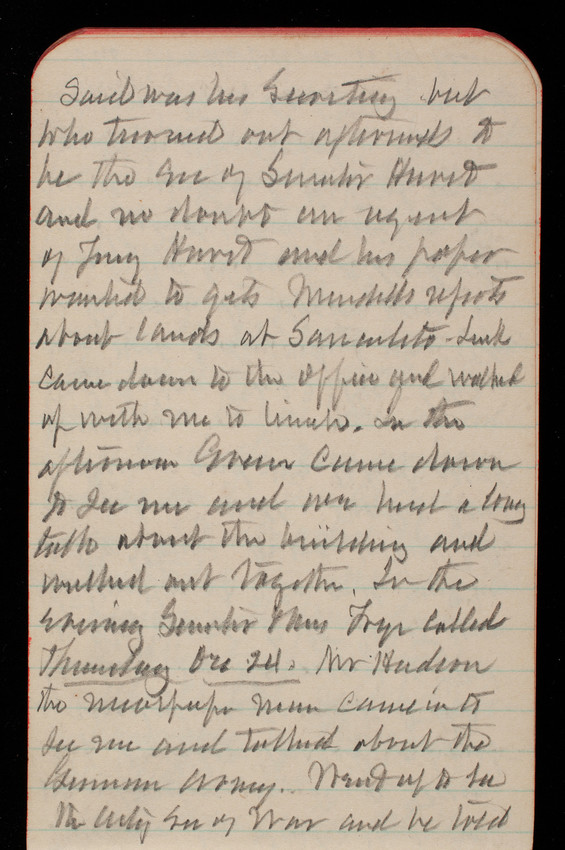 Said was his Secretary but
who turned out afterwards to
be the Sec of Senator Hurst
and no doubt an agent
of Hurst and his paper
wanted to gets Mendells reports
about lands at Sancelito -
came down to the office and walked
up with me to lunch. In the
afternoon Green came down
to see me and we had a long
talk about the building and
walked out together. In the
evening Senator Mrs Frye called
Thursday Dec 24. Mr Hudson
the newspaper man came in to
see me and talked about the
German Army. Went up to see
the Actg Sec of War and he told